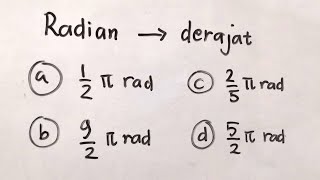 Radian → derajat
ⓐ 1/2 π rad
ⓒ 2/5 π rad
ⓑ 9/2 π rad
ⓓ 5/2 π rad